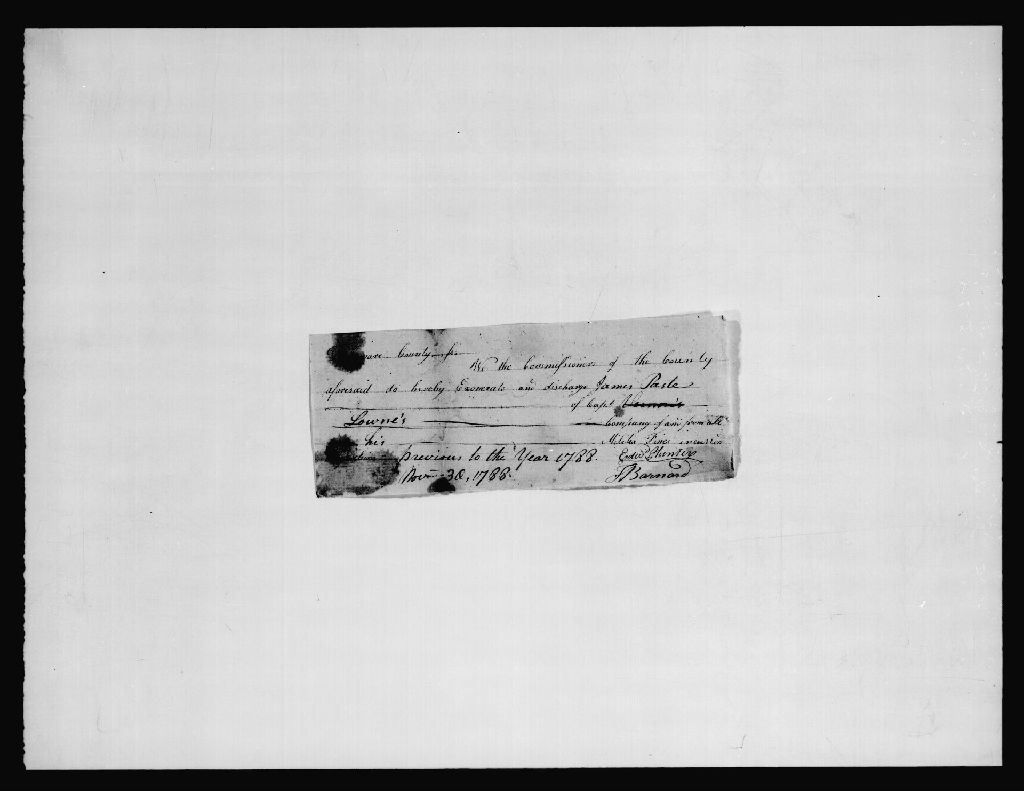 ware County ss
We the Commissioners of the County
aforesaid do hereby Exonerate and discharge James Parle
of Capt. Vernon's
Lowne's Company of and from all
his Militia Fines incurred in
previous to the Year 1788. Edwd. Hunter
Novr. 30, 1788. J Barnard